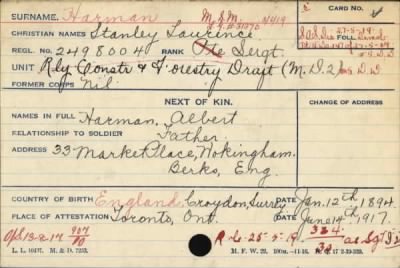 SURNAME. Harman M.S.M. CARD NO.
CHRISTIAN NAMES Stanley Laurence FOLL
REGL. NO. 2498004 RANK Pte Sergt.
UNIT Rly Constr & Forestry Draft (M.D.2)
FORMER CORPS Nil
NEXT OF KIN. CHANGE OF ADDRESS
NAMES IN FULL Harman, Albert
RELATIONSHIP TO SOLDIER Father
ADDRESS 33 Market Place, Wokingham.
Berks, Eng.
COUNTRY OF BIRTH England, Croydon, Surrey DATE Jan. 12th 1894.
PLACE OF ATTESTATION Toronto, Ont. DATE June 14th 1917.
R.C. 25-5-19 as Sgt
L. L. 10417. M. & D. 7253. M. F. W. 22.